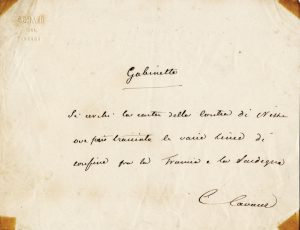 SENATO
DEL
Gabinetto
Si cerchi la carta della Contea di Nizza
ove tracciate le varie linee di
confine fra la Francia e la Sardegna
C Cavour